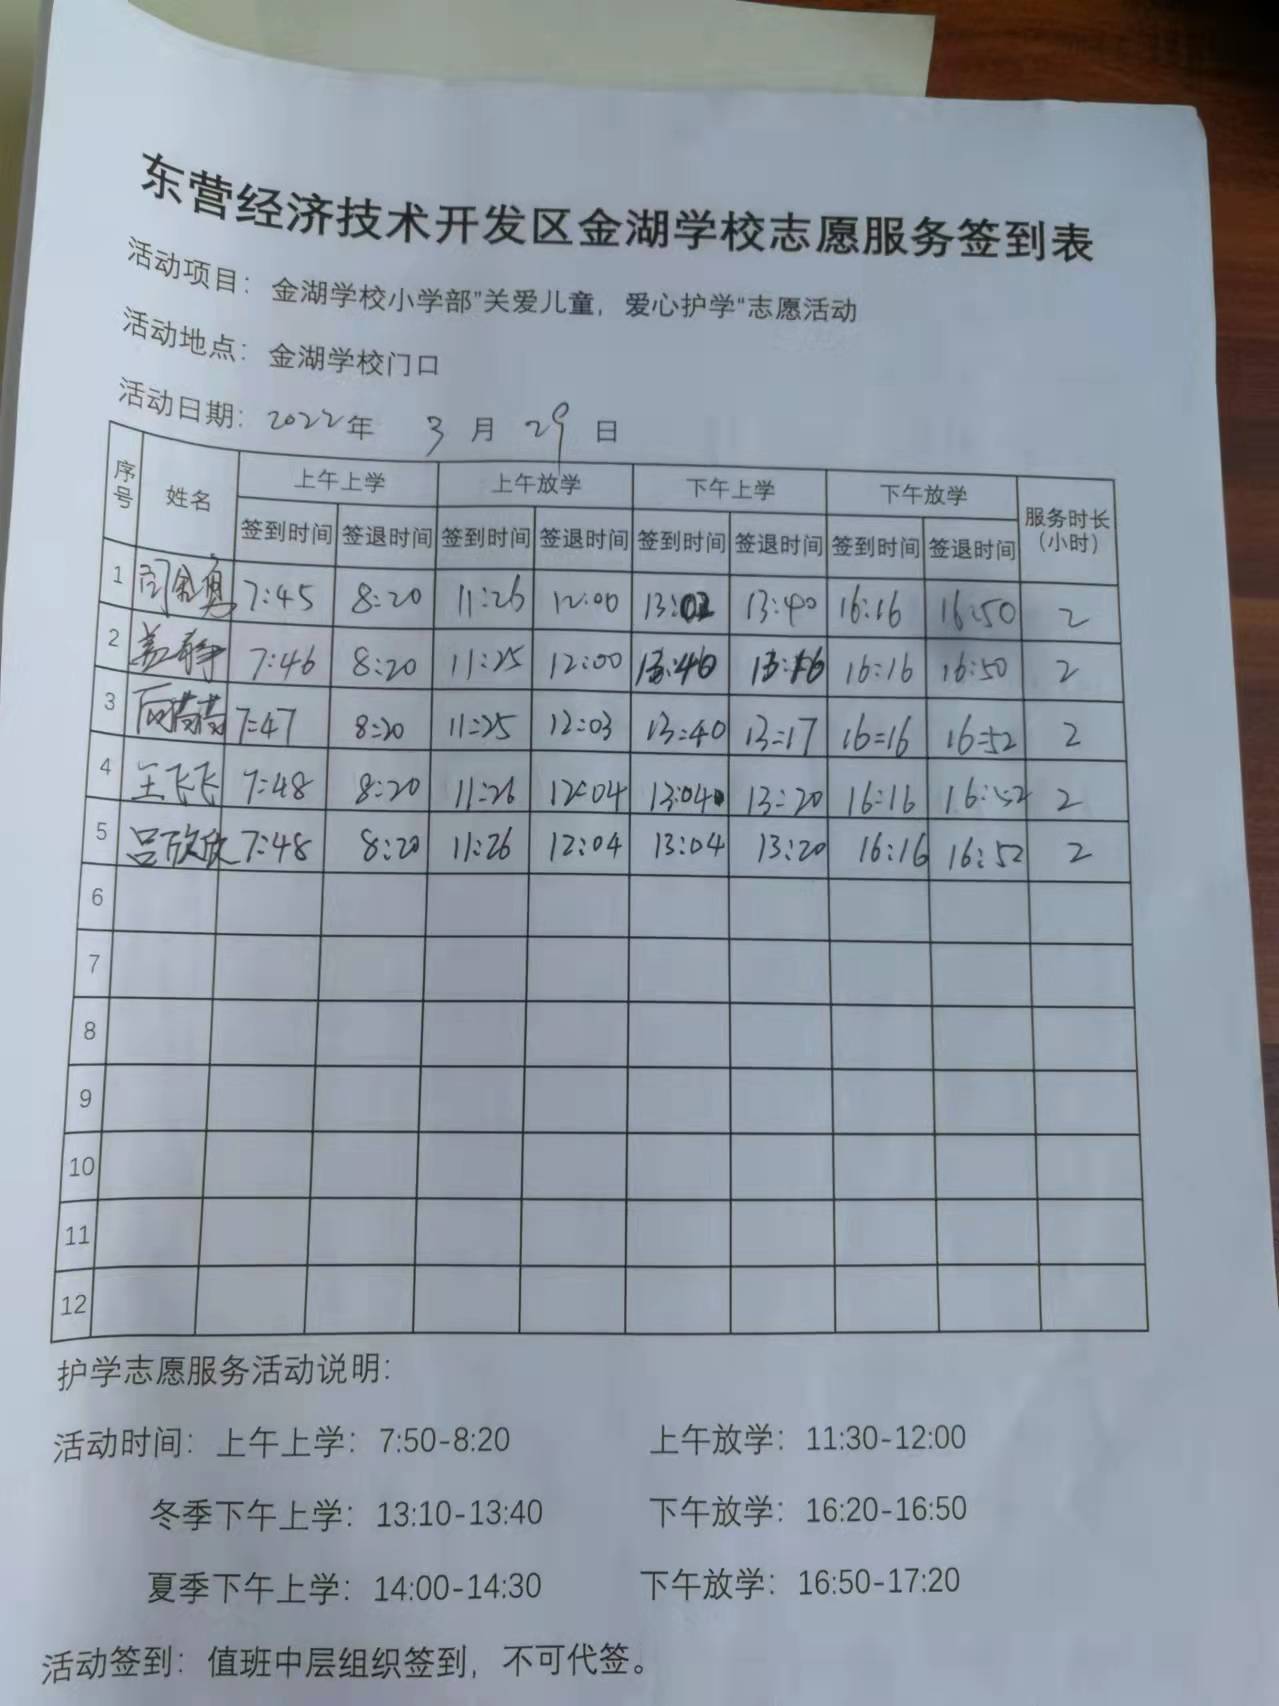 东营经济技术开发区金湖学校志愿服务签到表
活动项目：金湖学校小学部"关爱儿童，爱心护学"志愿活动
活动地点：金湖学校门口
活动日期：2022年 3 月 29 日
序号 姓名 上午上学 上午放学 下午上学 下午放学 服务时长（小时）
签到时间 签退时间 签到时间 签退时间 签到时间 签退时间 签到时间 签退时间
1 7:45 8:20 11:26 12:00 13:02 13:40 16:16 16:50 2
2 盖静 7:46 8:20 11:25 12:00 16:16 16:50 2
3 7:47 8:20 11:25 12:03 13:40 13:17 16:16 16:52 2
4 王飞飞 7:48 8:20 11:26 12:04 13:04 13:20 16:16 16:52 2
5 吕欣欣 7:48 8:20 11:26 12:04 13:04 13:20 16:16 16:52 2
6
7
8
9
10
11
12
护学志愿服务活动说明：
活动时间：上午上学：7:50-8:20 上午放学：11:30-12:00
冬季下午上学：13:10-13:40 下午放学：16:20-16:50
夏季下午上学：14:00-14:30 下午放学：16:50-17:20
活动签到：值班中层组织签到，不可代签。